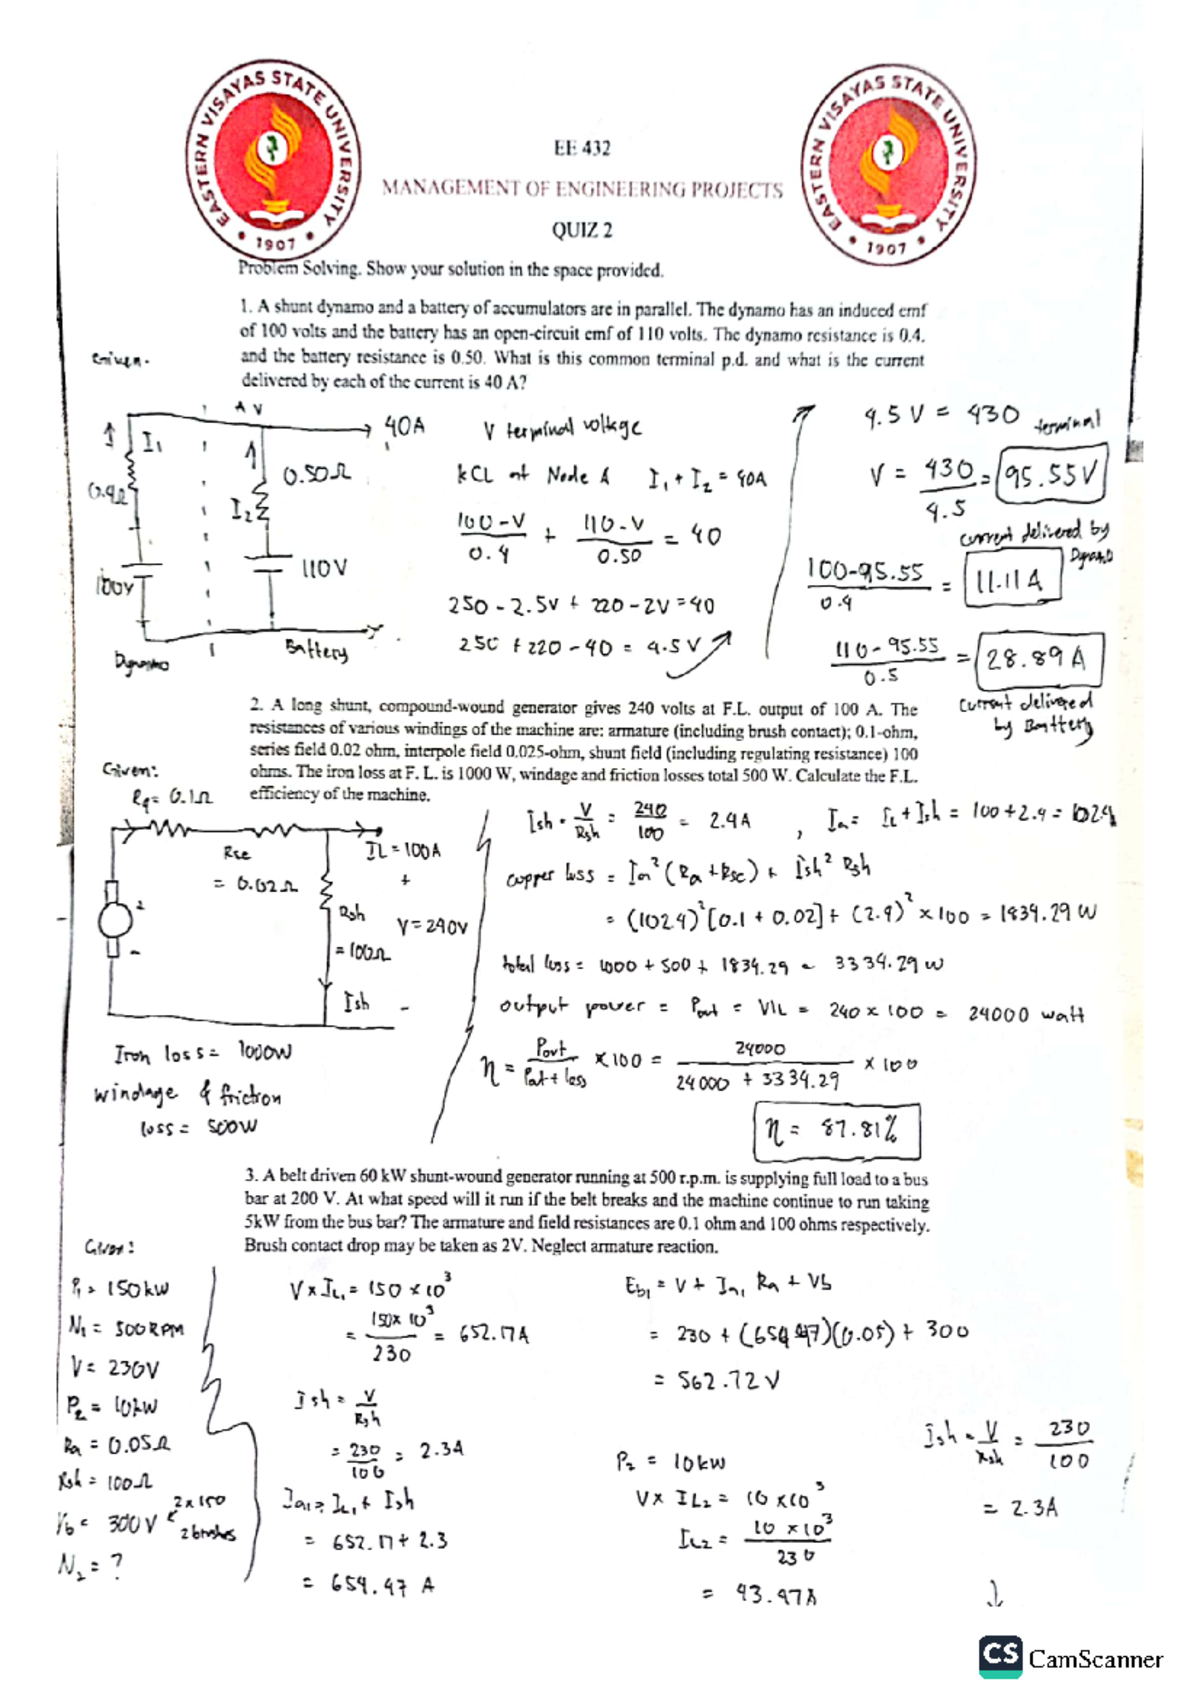 EASTERN VISAYAS STATE UNIVERSITY
• 1907 •
EASTERN VISAYAS STATE UNIVERSITY
• 1907 •
EE 432
MANAGEMENT OF ENGINEERING PROJECTS
QUIZ 2
Problem Solving. Show your solution in the space provided.
1. A shunt dynamo and a battery of accumulators are in parallel. The dynamo has an induced emf
of 100 volts and the battery has an open-circuit emf of 110 volts. The dynamo resistance is 0.4.
and the battery resistance is 0.50. What is this common terminal p.d. and what is the current
delivered by each of the current is 40 A?
Given.
A V
40A
I₁
0.4Ω
0.50Ω
I₂
100V
110V
Dynamo
Battery
V terminal voltage
KCL at Node A I₁ + I₂ = 40A
100-V / 0.4 + 110-V / 0.50 = 40
250 - 2.5V + 220 - 2V = 40
250 + 220 - 40 = 4.5 V
4.5 V = 430
terminal
V = 430 / 4.5 = 95.55V
current delivered by Dynamo
100-95.55 / 0.4 = 11.11 A
110-95.55 / 0.5 = 28.89 A
Current delivered by Battery
2. A long shunt, compound-wound generator gives 240 volts at F.L. output of 100 A. The
resistances of various windings of the machine are: armature (including brush contact); 0.1-ohm,
series field 0.02 ohm, interpole field 0.025-ohm, shunt field (including regulating resistance) 100
ohms. The iron loss at F. L. is 1000 W, windage and friction losses total 500 W. Calculate the F.L.
efficiency of the machine.
Given:
Ra = 0.1Ω
Rse = 0.02Ω
IL = 100A
+
Rsh = 100Ω
V = 240V
Ish
-
Iron loss = 1000W
windage & friction
loss = 500W
Ish = V / Rsh = 240 / 100 = 2.4A , Ia = IL + Ish = 100 + 2.4 = 102.4
copper loss = Ia² (Ra + Rse) + Ish² Rsh
= (102.4)² [0.1 + 0.02] + (2.4)² × 100 = 1834.29 W
total loss = 1000 + 500 + 1834.29 = 3334.29 W
output power = Pout = VIL = 240 × 100 = 24000 watt
η = Pout / Pout + loss × 100 = 24000 / 24000 + 3334.29 × 100
η = 87.81%
3. A belt driven 60 kW shunt-wound generator running at 500 r.p.m. is supplying full load to a bus
bar at 200 V. At what speed will it run if the belt breaks and the machine continue to run taking
5kW from the bus bar? The armature and field resistances are 0.1 ohm and 100 ohms respectively.
Brush contact drop may be taken as 2V. Neglect armature reaction.
Given:
P₁ = 150kW
N₁ = 500RPM
V = 230V
P₂ = 10kW
Ra = 0.05Ω
Rsh = 100Ω
Vb = 300V
2 x 150
2 brushes
N₂ = ?
V × IL₁ = 150 × 10³
= 150 × 10³ / 230 = 652.17A
Ish = V / Rsh
= 230 / 100 = 2.3A
Ia₁ = IL₁ + Ish
= 652.17 + 2.3
= 654.47 A
Eb₁ = V + Ia₁ Ra + Vb
= 230 + (654.47)(0.05) + 300
= 562.72 V
P₂ = 10kW
V × IL₂ = 10 × 10³
IL₂ = 10 × 10³ / 230
= 43.47A
Ish = V / Rsh = 230 / 100
= 2.3A
CS CamScanner